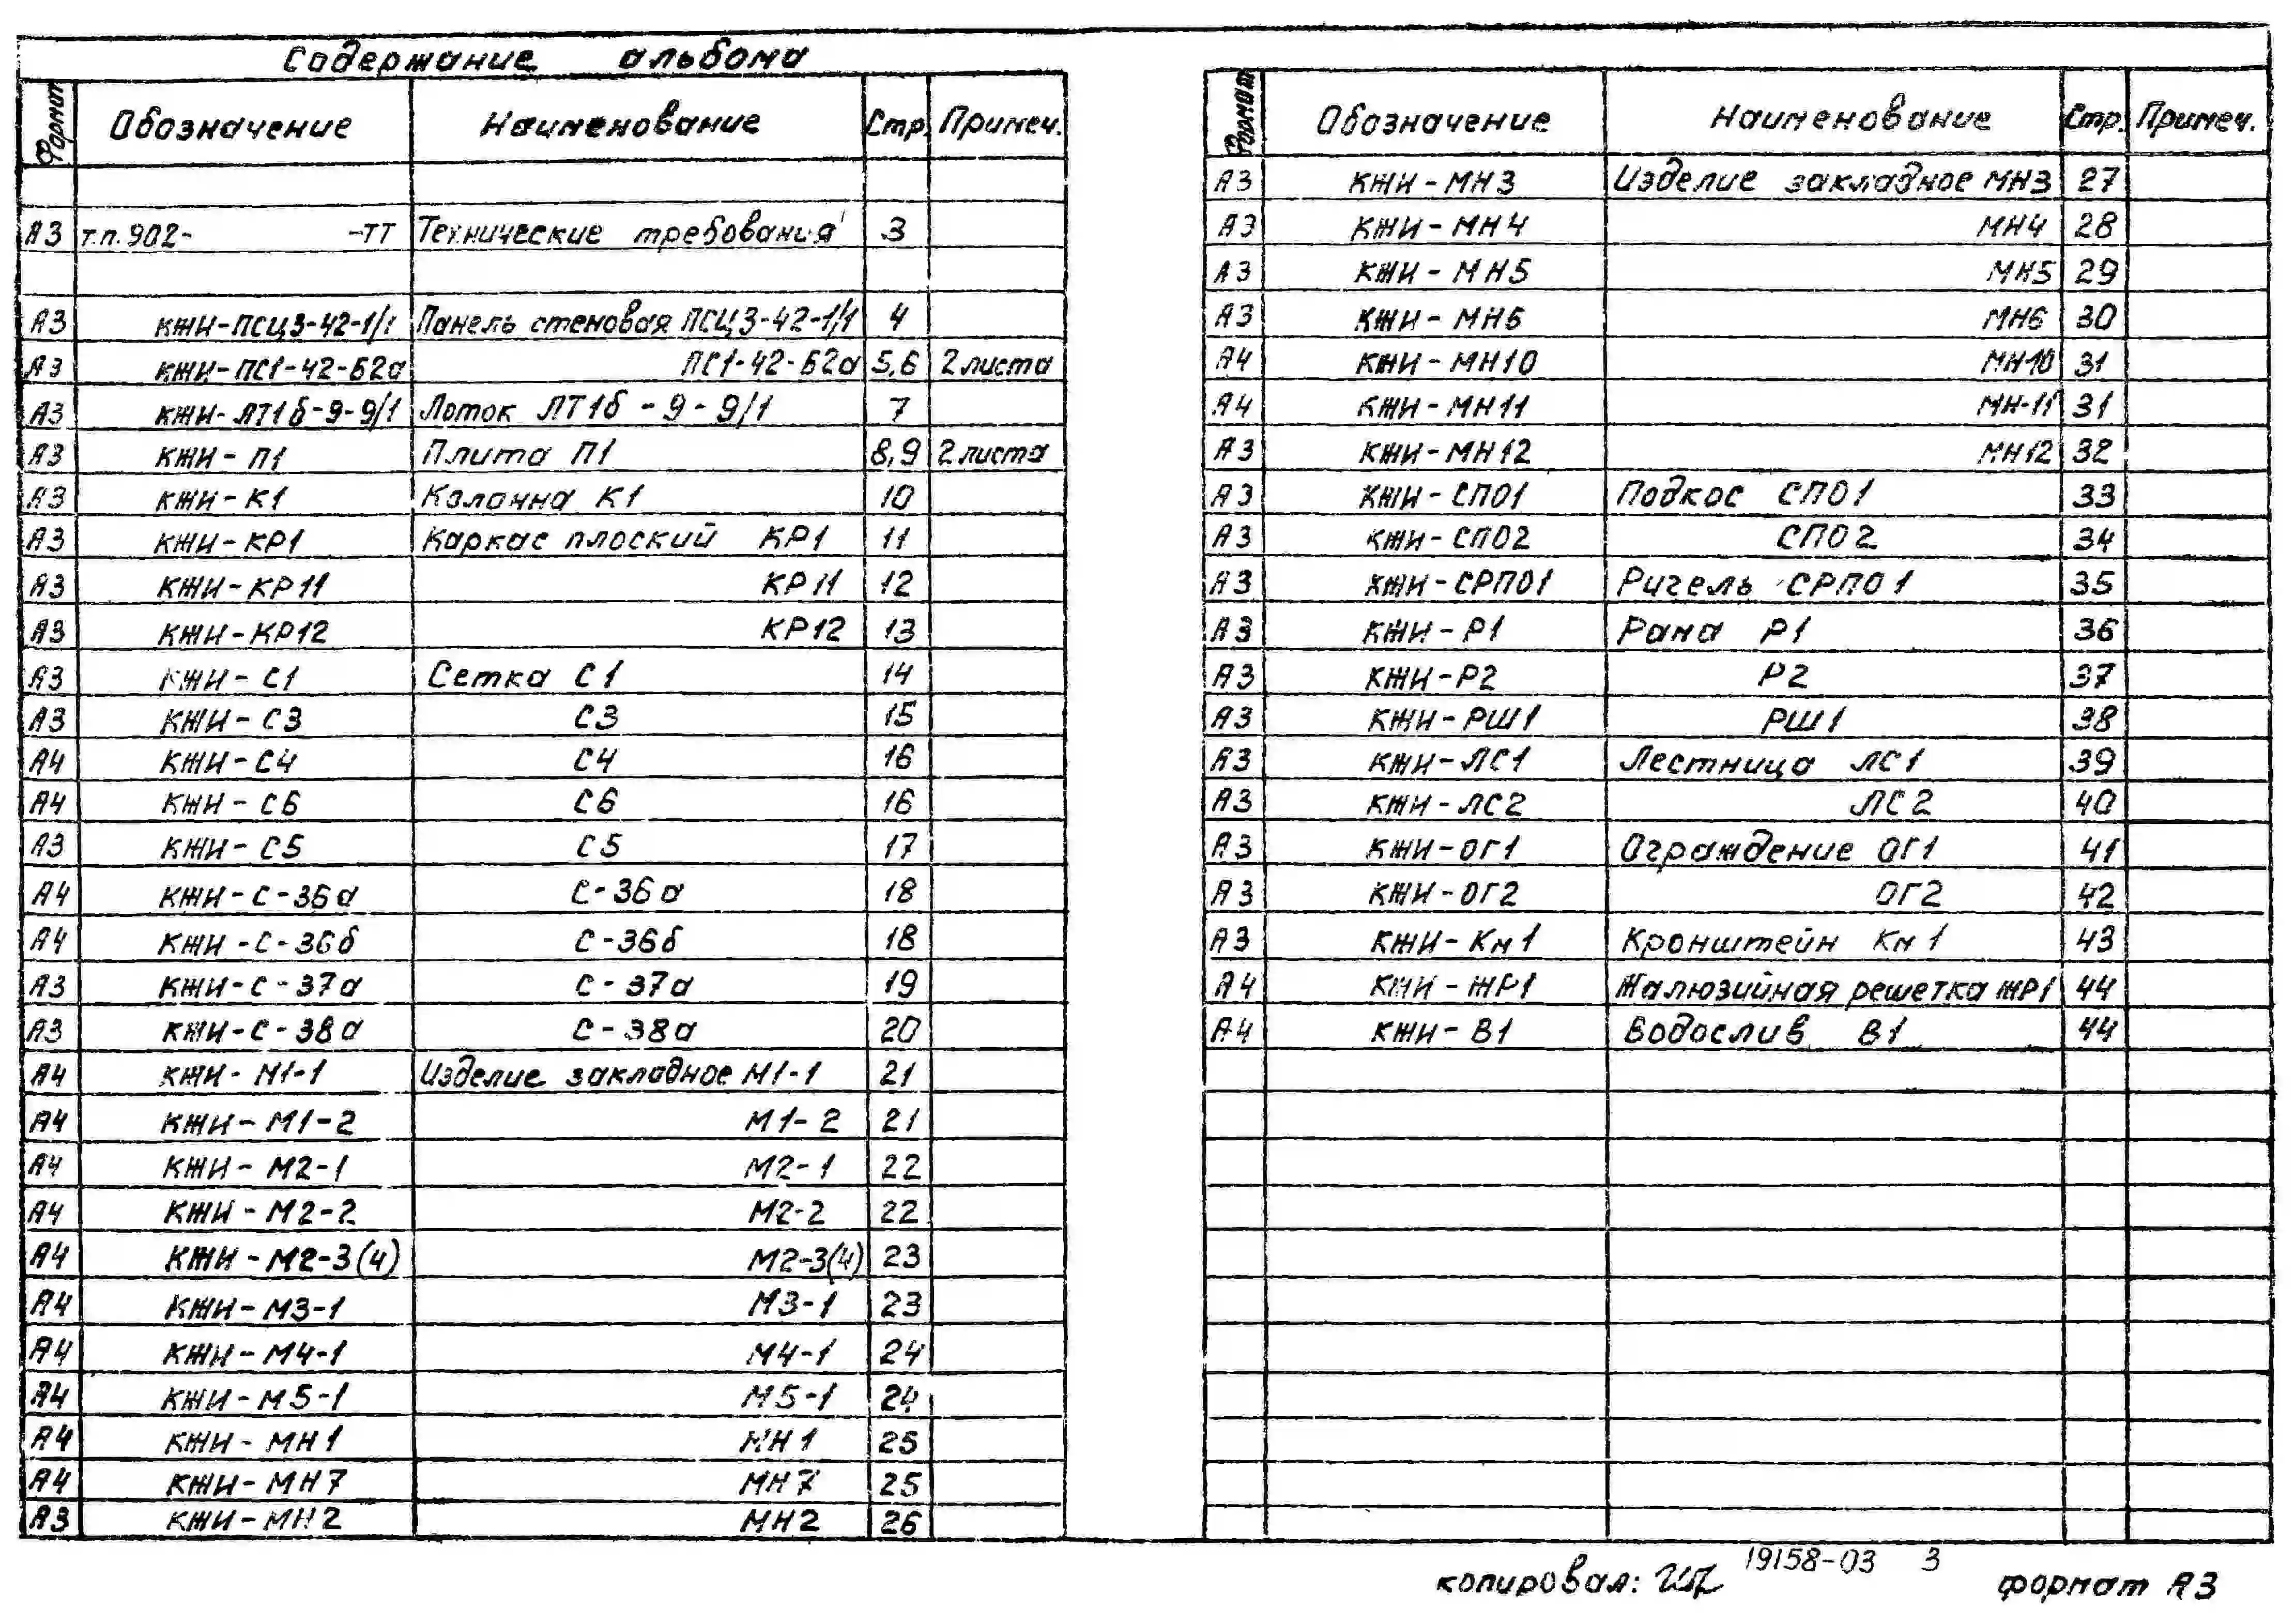 Содержание альбома
Формат Обозначение Наименование Стр. Примеч.
А3 т.п. 902- -ТТ Технические требования 3
А3 КЖИ-ПСЦ3-42-1/1 Панель стеновая ПСЦ3-42-1/1 4
А3 КЖИ-ПС1-42-Б2а ПС1-42-Б2а 5,6 2 листа
А3 КЖИ-ЛТ1б-9-9/1 Лоток ЛТ1б-9-9/1 7
А3 КЖИ-П1 Плита П1 8,9 2 листа
А3 КЖИ-К1 Колонна К1 10
А3 КЖИ-КР1 Каркас плоский КР1 11
А3 КЖИ-КР11 КР11 12
А3 КЖИ-КР12 КР12 13
А3 КЖИ-С1 Сетка С1 14
А3 КЖИ-С3 С3 15
А4 КЖИ-С4 С4 16
А4 КЖИ-С6 С6 16
А3 КЖИ-С5 С5 17
А4 КЖИ-С-36а С-36а 18
А4 КЖИ-С-36б С-36б 18
А3 КЖИ-С-37а С-37а 19
А3 КЖИ-С-38а С-38а 20
А4 КЖИ-М1-1 Изделие закладное М1-1 21
А4 КЖИ-М1-2 М1-2 21
А4 КЖИ-М2-1 М2-1 22
А4 КЖИ-М2-2 М2-2 22
А4 КЖИ-М2-3(4) М2-3(4) 23
А4 КЖИ-М3-1 М3-1 23
А4 КЖИ-М4-1 М4-1 24
А4 КЖИ-М5-1 М5-1 24
А4 КЖИ-МН1 МН1 25
А4 КЖИ-МН7 МН7 25
А3 КЖИ-МН2 МН2 26
Формат Обозначение Наименование Стр. Примеч.
А3 КЖИ-МН3 Изделие закладное МН3 27
А3 КЖИ-МН4 МН4 28
А3 КЖИ-МН5 МН5 29
А3 КЖИ-МН6 МН6 30
А4 КЖИ-МН10 МН10 31
А4 КЖИ-МН11 МН-11 31
А3 КЖИ-МН12 МН12 32
А3 КЖИ-СП01 Подкос СП01 33
А3 КЖИ-СП02 СП02 34
А3 КЖИ-СРП01 Ригель СРП01 35
А3 КЖИ-Р1 Рама Р1 36
А3 КЖИ-Р2 Р2 37
А3 КЖИ-РШ1 РШ1 38
А3 КЖИ-ЛС1 Лестница ЛС1 39
А3 КЖИ-ЛС2 ЛС2 40
А3 КЖИ-ОГ1 Ограждение ОГ1 41
А3 КЖИ-ОГ2 ОГ2 42
А3 КЖИ-Км1 Кронштейн Км1 43
А4 КЖИ-ЖР1 Жалюзийная решетка ЖР1 44
А4 КЖИ-В1 Водослив В1 44
19158-03 3
копировал: формат А3